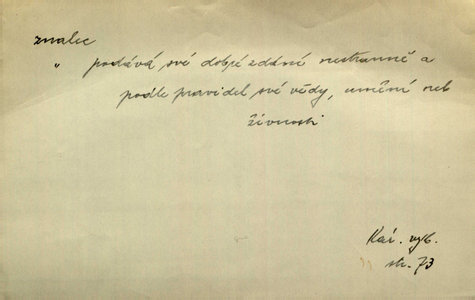 znalec
" podává své dobré zdání nestranně a
podle pravidel své vědy, umění neb
živnosti
Kár. výb.
str. 73